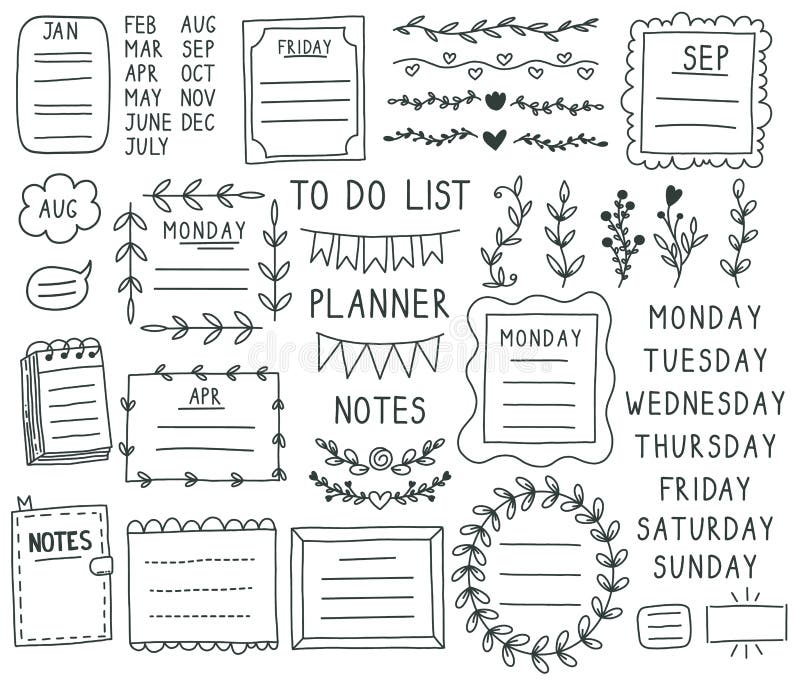 JAN
FEB AUG
MAR SEP
APR OCT
MAY NOV
JUNE DEC
JULY
FRIDAY
SEP
AUG
MONDAY
TO DO LIST
PLANNER
NOTES
MONDAY
APR
NOTES
MONDAY
TUESDAY
WEDNESDAY
THURSDAY
FRIDAY
SATURDAY
SUNDAY